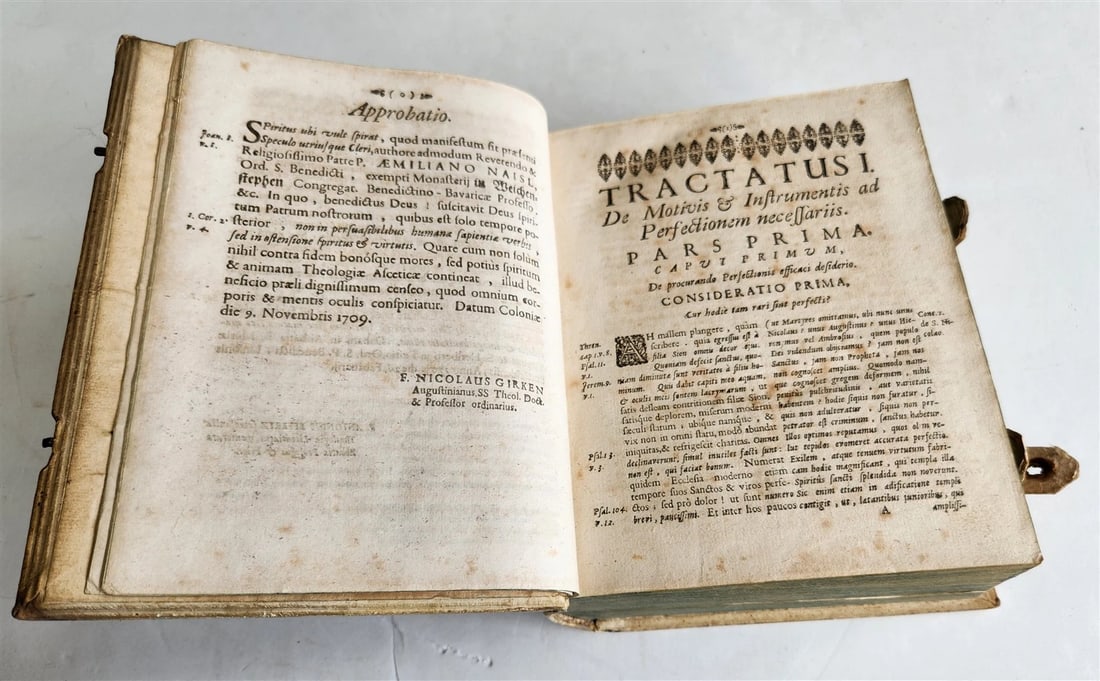 ( o )
Approbatio.
Joan. 3. SPiritus ubi vult spirat, quod manifestum fit præsenti
v. 8. Speculo utriusque Cleri, authore admodum Reverendo &
Religiosissimo Patre P. ÆMILIANO NAISL,
Ord. S. Benedicti, exempti Monasterij in Weichen-
stephen Congregat. Benedictino-Bavaricæ Professo,
&c. In quo, benedictus Deus! suscitavit Deus spiri-
tum Patrum nostrorum, quibus est solo tempore po-
1. Cor. 2. sterior, non in persuasibilibus humanæ sapientiæ verbis,
v. 4. sed in ostensione spiritus & virtutis. Quare cum non solùm
nihil contra fidem bonósque mores, sed potiùs spiritum
& animam Theologiæ Asceticæ contineat, illud be-
neficio præli dignissimum censeo, quod omnium cor-
poris & mentis oculis conspiciatur. Datum Coloniæ
die 9. Novembris 1709.
F. NICOLAUS GIRKEN
Augustinianus, SS Theol. Doct.
& Professor ordinarius.
TRACTATUS I.
De Motivis & Instrumentis ad
Perfectionem necessariis.
PARS PRIMA.
CAPUT PRIMUM,
De procurando Perfectionis efficaci desiderio.
CONSIDERATIO PRIMA,
Cur hodie tam rari sint perfecti?
Thren.
cap 1. v. 8.
Psal. 11.
v. 1.
Jerem. 9.
v. 1.
Psal. 13.
v. 3.
Psal. 104.
v. 12.
AH mallem plangere, quàm
scribere, quia egressus est à
filia Sion omnis decor ejus.
Quoniam defecit sanctus, quo-
niam diminutæ sunt veritates à filiis ho-
minum. Quis dabit capiti meo aquam,
& oculis meis fontem lacrymarum, ut
satis defleam contritionem filiæ Sion,
satisque deplorem, miserum moderni
sæculi statum, ubique namque, &
vix non in omni statu, modò abundat
iniquitas, & refrigescit charitas. Omnes
declinaverunt, simul inutiles facti sunt:
non est, qui faciat bonum. Numerat
quidem Ecclesia moderno etiam
tempore suos Sanctos & viros perfe-
ctos; sed prô dolor! ut sunt numero
brevi, paucissimi. Et inter hos paucos
(ut Martyres omittamus, ubi nunc unus
Nicolaus? unus Augustinus? unus Hie-
ronymus vel Ambrosius, quem populo
Dei videndum objiciamus? jam non est
Sanctus, jam non Propheta, jam nos
non cognoscet amplius. Quomodo nam-
que cognoscet gregem deformem, nihil
penitus pulchritudinis, aut varietatis
habentem? hodie siquis non furatur, si-
quis non adulteratur, siquis non per-
petrator est criminum, sanctus habetur.
Illos optimos reputamus, quos olim ve-
lut tepidos evomeret accurata perfectio.
Exilem, atque tenuem virtutum fabri-
cam hodie magnificant, qui templa illa
Spiritus sancti splendida non noverunt.
Sic enim etiam in ædificatione templi
contigit, ut, lætantibus junioribus, qui
Conc. 1.
de S. Ni-
colao.
A amplissi-